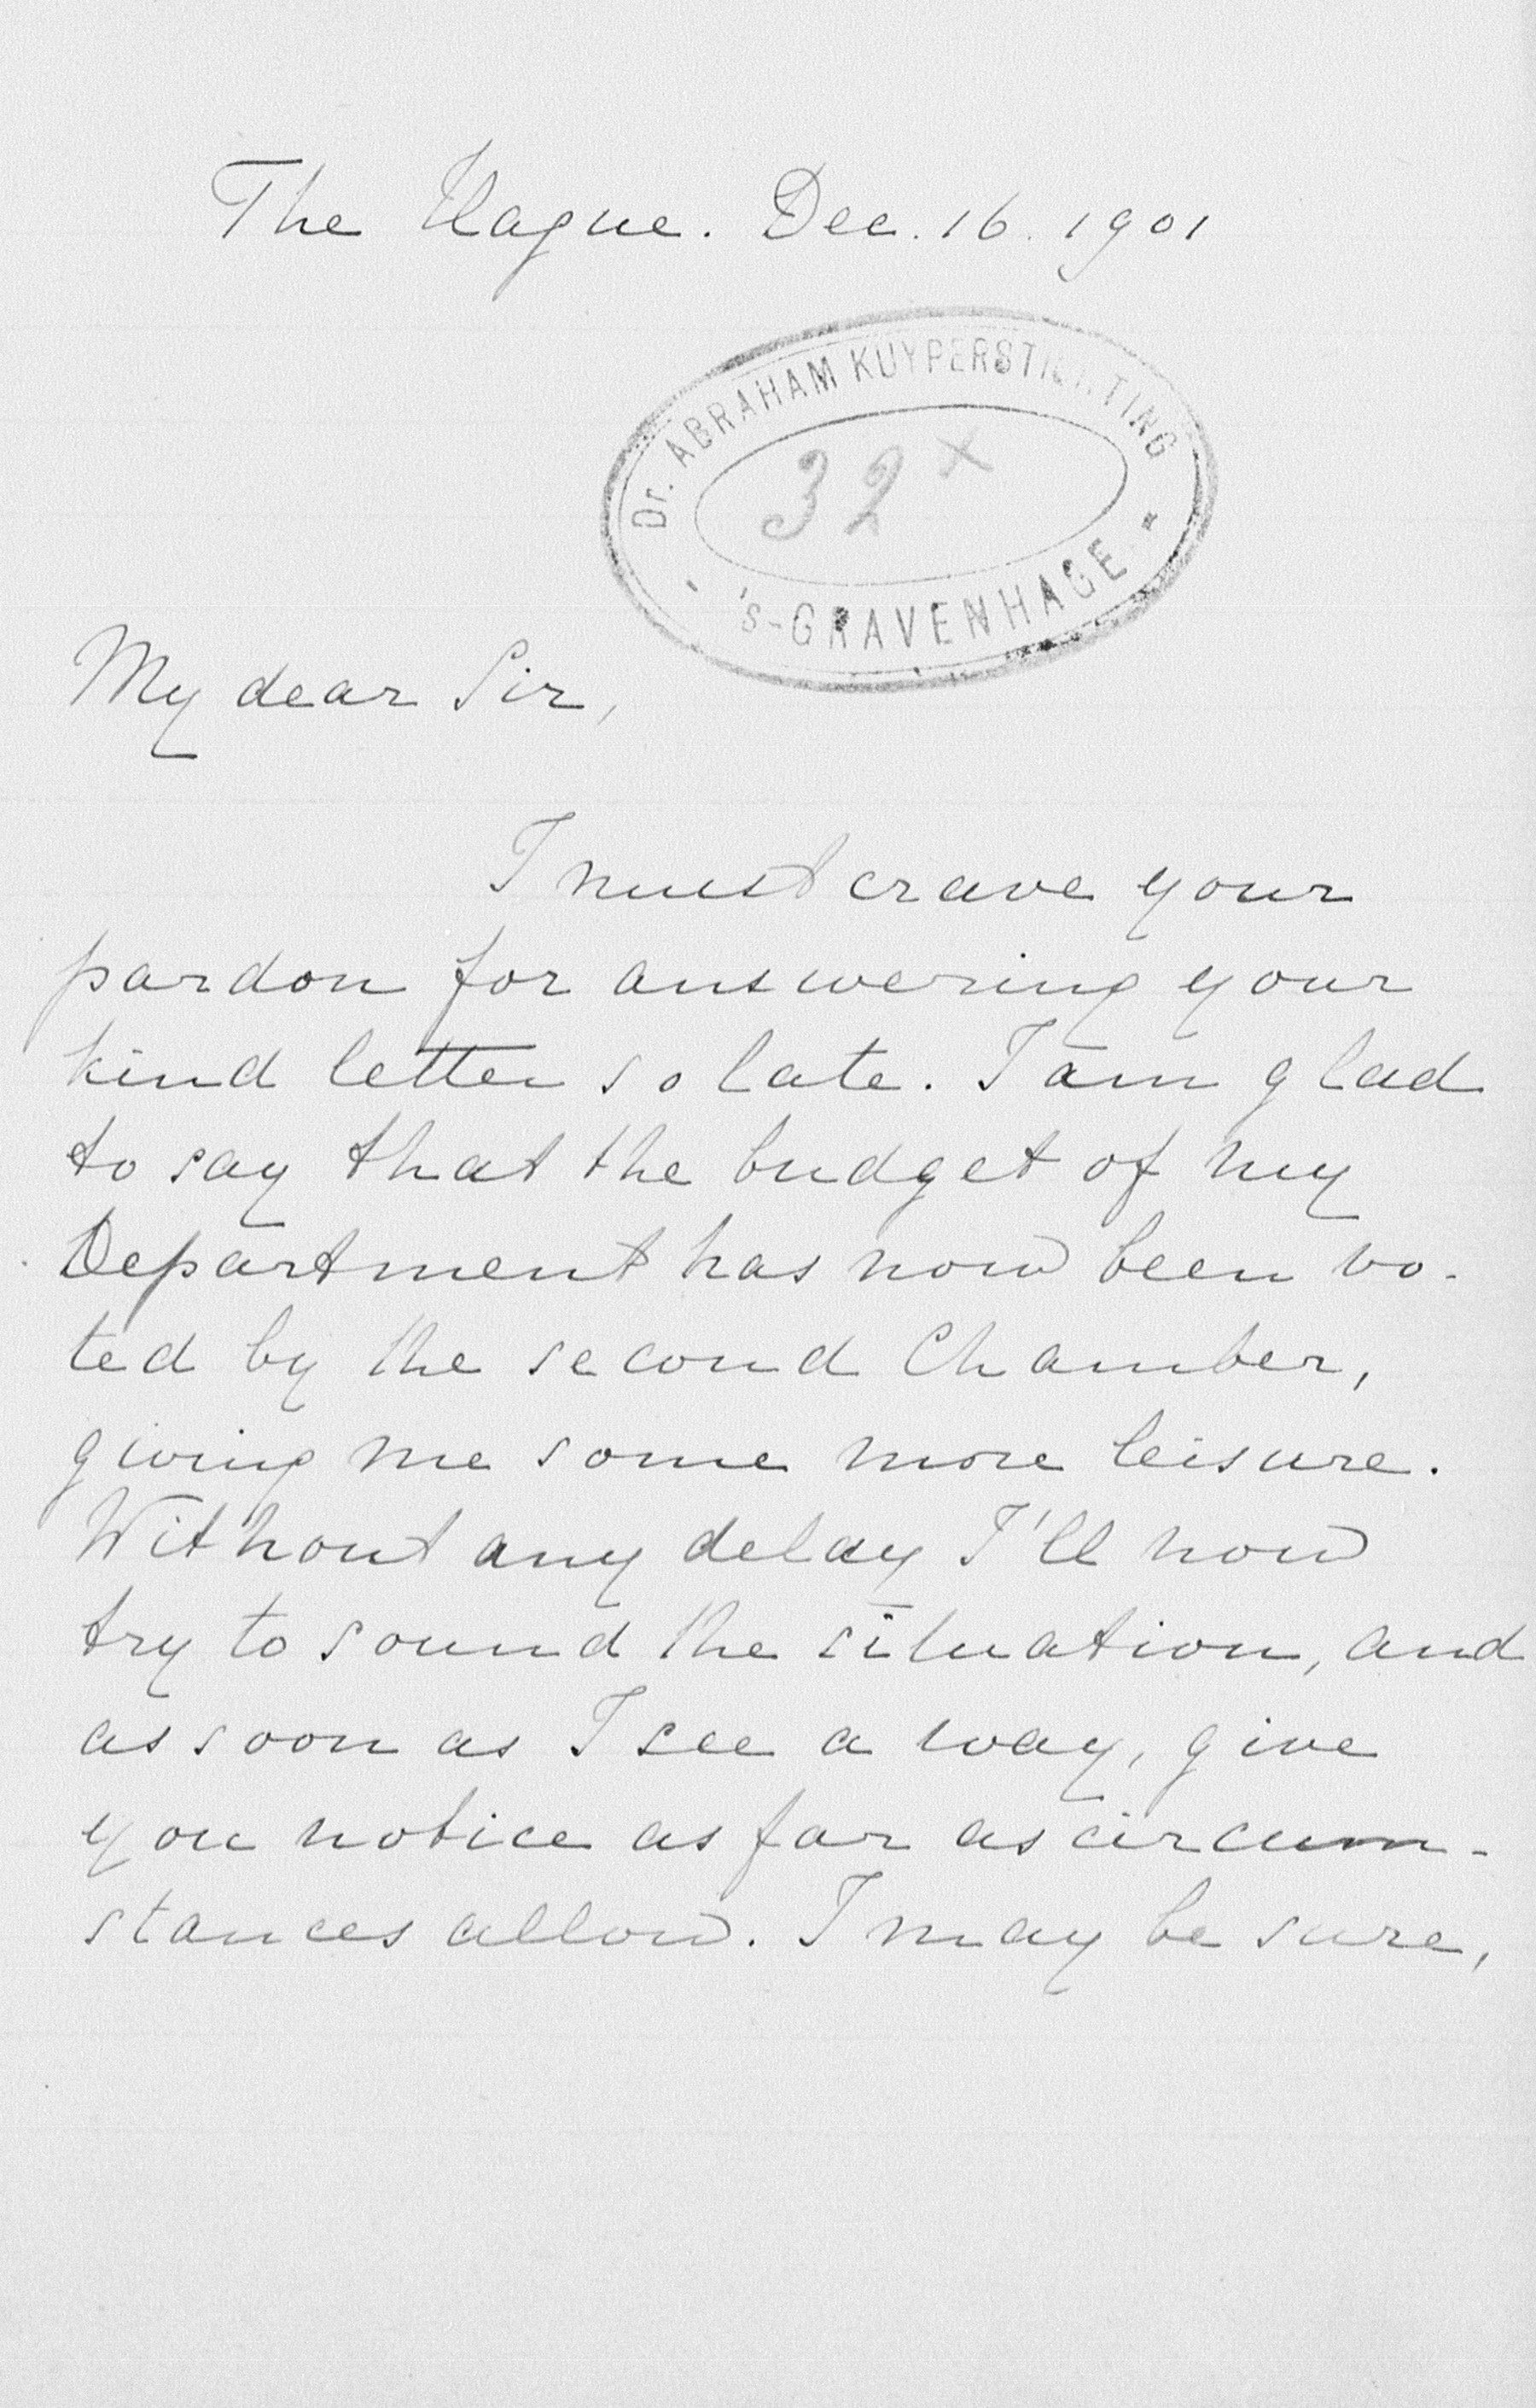 The Hague. Dec. 16. 1901
Dr. ABRAHAM KUYPERSTICHTING
32 x
's-GRAVENHAGE
My dear Sir,
I must crave your
pardon for answering your
kind letter so late. I am glad
to say that the budget of my
Department has now been vo-
ted by the second Chamber,
giving me some more leisure.
Without any delay I'll now
try to sound the situation, and
as soon as I see a way, give
you notice as far as circum-
stances allow. I may be sure,